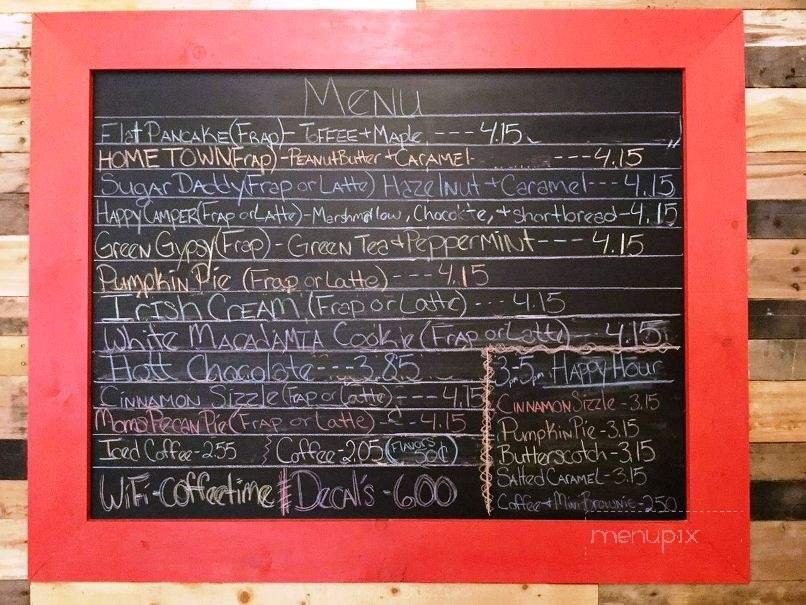 MENU
Flat PANCAKE(FRAP)- TOFFEE + Maple --- 4.15
HOME TOWN(Frap) - PEANUTBUTTER + CARAMEL- ---4.15
Sugar Daddy(Frap or Latte) Hazelnut + Caramel--- 4.15
HAPPY CAMPER(FRAP orLatte)-Marshmallow, Chocolate, + shortbread-4.15
GREEN Gypsy(Frap) - GREEN Tea + PEPPERMINT--- 4.15
Pumpkin Pie (Frap or Latte)--- 4.15
IRISH CREAM (Frap or Latte) --- 4.15
White MACADAMIA Cookie (FRAP or Latte)--- 4.15
Hott Chocolate---3.85
CINNAMON Sizzle (Frap or Latte)--- 4.15
Moms PECAN Pie (Frap or Latte) - - -4.15
Iced Coffee-2.55 Coffee-2.05 FLAVORS 50¢
WiFi-coffeetime Decal's -6.00
3pm-5pm HAPPY HOUR
CINNAMON Sizzle -3.15
Pumpkin Pie -3.15
Butterscotch-3.15
Salted CARAMEL-3.15
Coffee + Mini BROWNIE-2.50
menupix